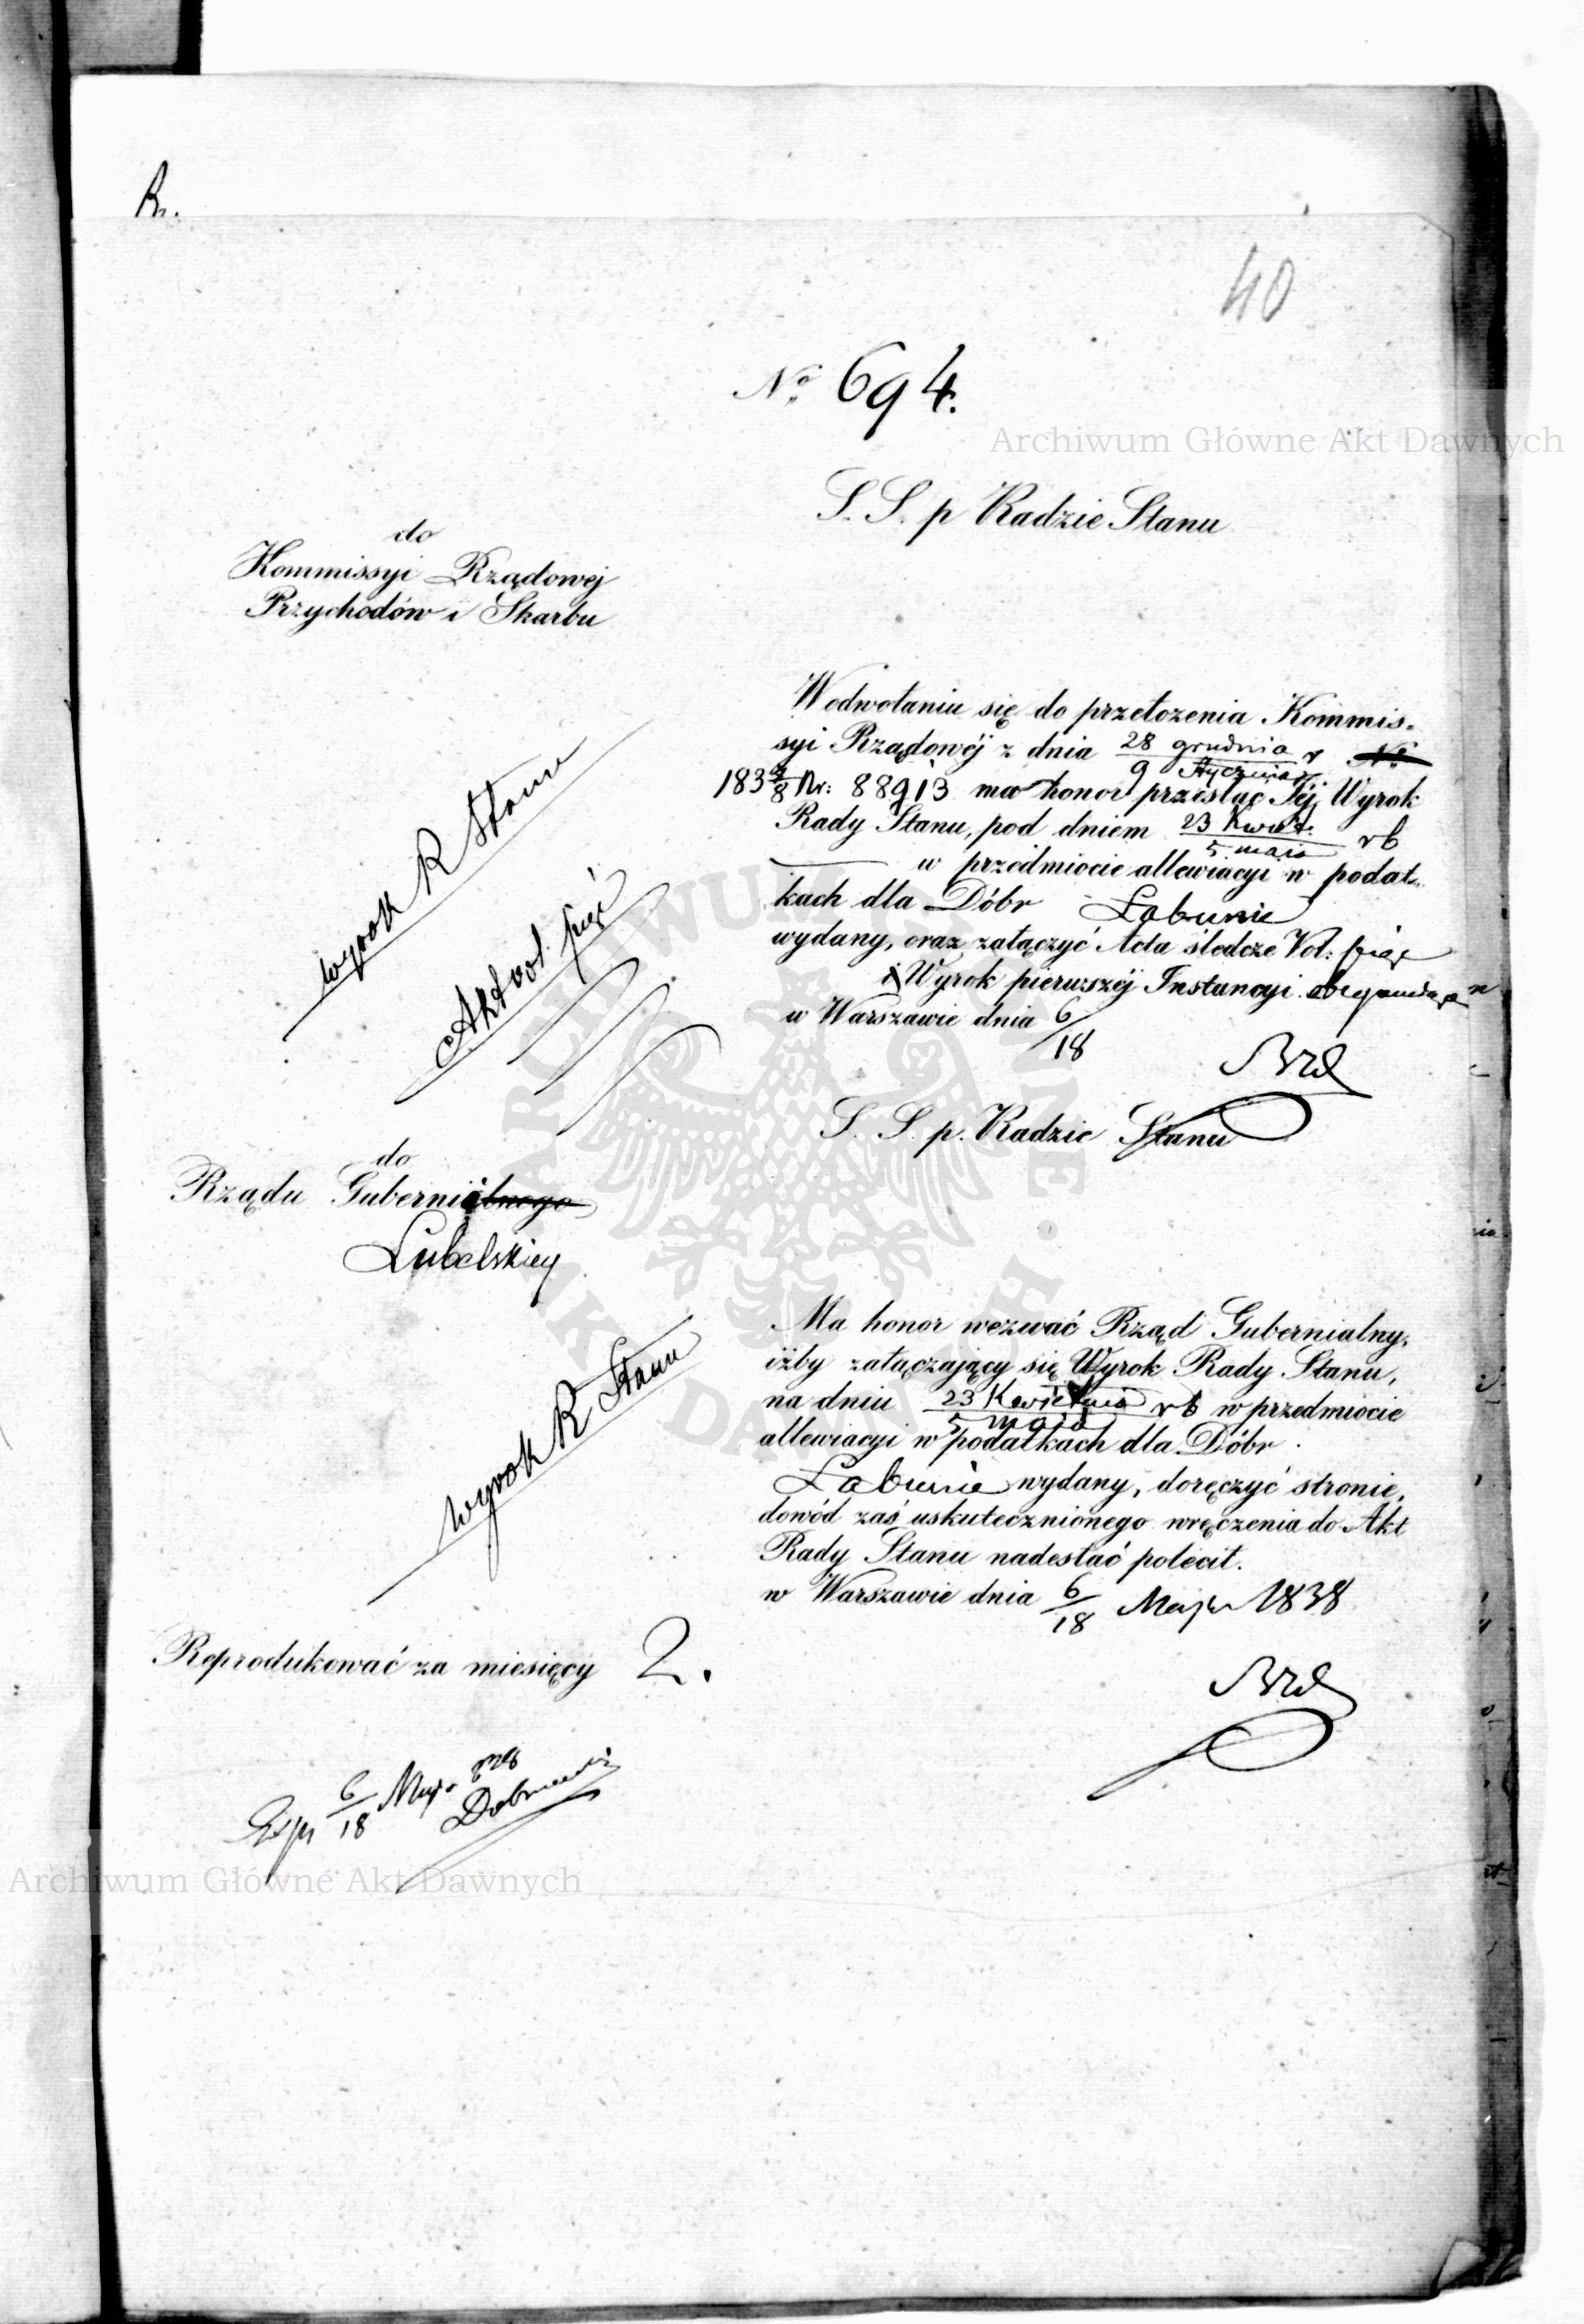 R.
40
No 694.
Archiwum Główne Akt Dawnych
S. S. p Radzie Stanu
do
Kommissyi Rządowej
Przychodów i Skarbu
W odwołaniu się do przełożenia Kommis-
syi Rządowéj z dnia 28 grudnia / 9 Stycznia r No
1837/8 Nr: 88913 ma honor przesłać Jéj Wyrok
Rady Stanu, pod dniem 23 Kwiet. / 5 maia rb
w przedmiocie allewiacyi w podat-
kach dla Dóbr Łabunie
wydany, oraz załączyć Acta śledcze Vol: pięć
i Wyrok pierwszéj Instancyi
w Warszawie dnia 6/18
wyrok R Stanu
Akt vol. pięć
S. S. p. Radzie Stanu
do
Rządu Gubernialnego
Lubelskiey
Ma honor wezwać Rząd Gubernialny,
iżby załączający się Wyrok Rady Stanu,
na dniu 23 Kwietnia / 5 maia rb w przedmiocie
allewiacyi w podatkach dla Dóbr
Łabunie wydany, doręczyć stronie,
dowód zaś uskutecznionego wręczenia do Akt
Rady Stanu nadesłać polecił.
w Warszawie dnia 6/18 Maja 1838
wyrok R Stanu
Reprodukować za miesięcy 2.
6/18 Maja 838
Archiwum Główne Akt Dawnych
ARCHIWUM GŁÓWNE AKT DAWNYCH